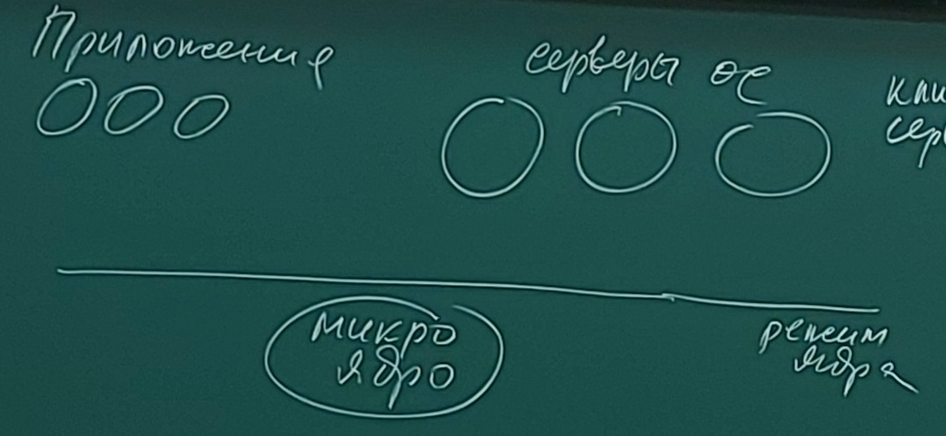 Приложения
серверы ос
микро
ядро
режим
ядра